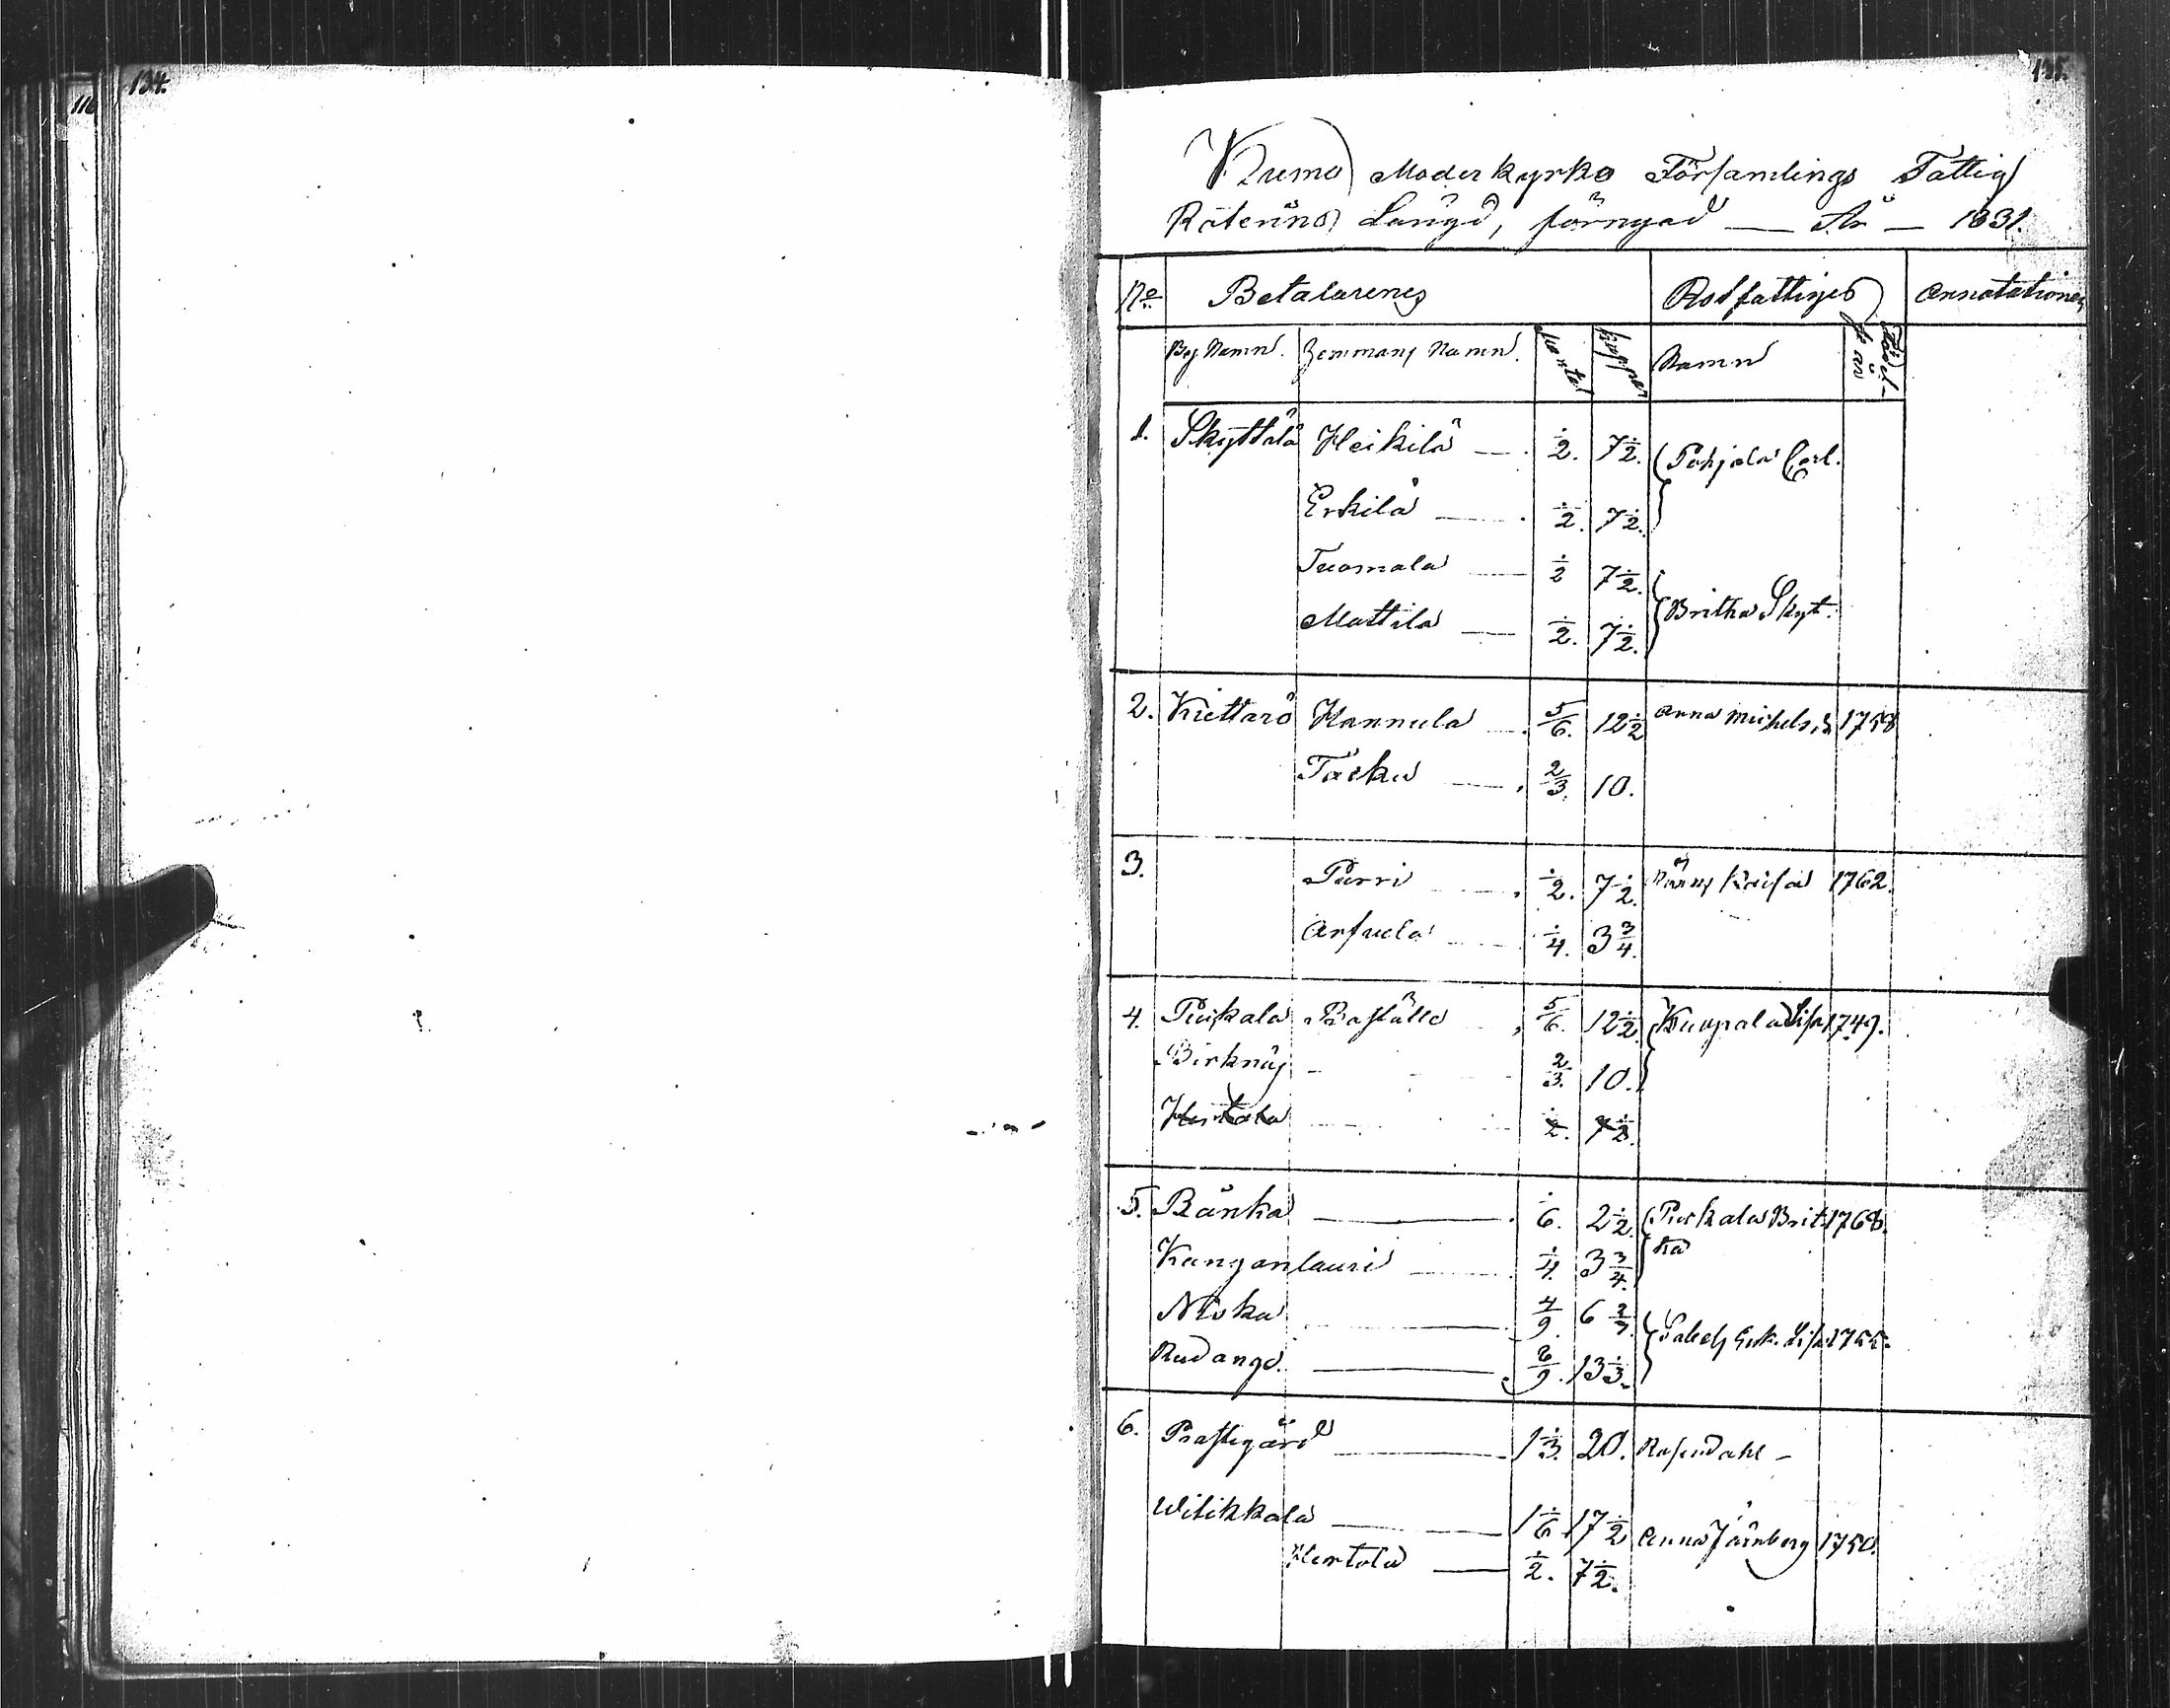 134.
116
135.
Kumo Moderkyrko Församlings Fattig
Roterings Längd, förnyad — År — 1831.
No. Betalarenes Rotfattiges Annotationer
By Namn. Hemmans Namn. mantal kappar Namn född år
1. Skyttälä Heikilä — ½. 7½. Pohjala Carl.
Erkilä — ½. 7½.
Tuomala — ½ 7½.
Mattila — ½. 7½. Britha Skyt.
2. Kiettarö Hannula 5/6. 12½ Anna Michels. 1758
Tacku — 2/3. 10.
3. Purri ½. 7½. 1762.
Arfvela ¼. 3¾.
4. Puskala Boställe 5/6. 12½. Kuopala Lisa 1749.
Birknäs 2/3. 10.
Hertola ½. 7½.
5. Ränka — 1/6. 2½. Puskala Brit 1768.
Kanganlauri — ¼. 3¾. ta
Niska — 4/9. 6 2/3. Lisa 1755.
Rudango. — 8/9. 13⅓.
6. Prästgård — 1⅓. 20. Rosendahl –
Witikkala — 1 1/6. 17½ Anna Järnberg 1750.
Hertola — ½. 7½.